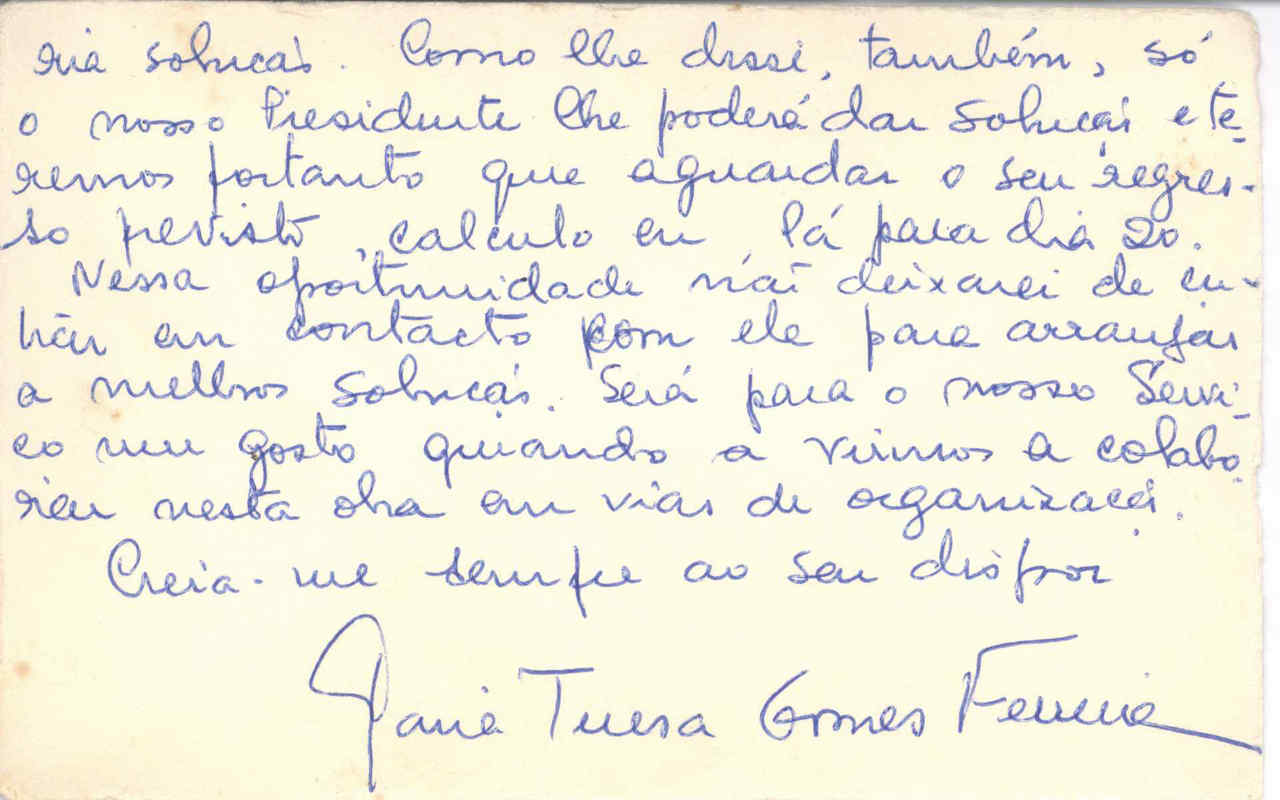 ria solução. Como lhe disse, também, só
o nosso Presidente lhe poderá dar solução e te-
remos portanto que aguardar o seu regres-
so previsto, calculo eu, lá para dia 20.
Nessa oportunidade não deixarei de en-
trar em contacto com ele para arranjar
a melhor solução. Será para o nosso Servi-
ço um gosto quando a virmos a colabo-
rar nesta obra em vias de organização.
Creia-me sempre ao seu dispor
Maria Teresa Gomes Ferreira